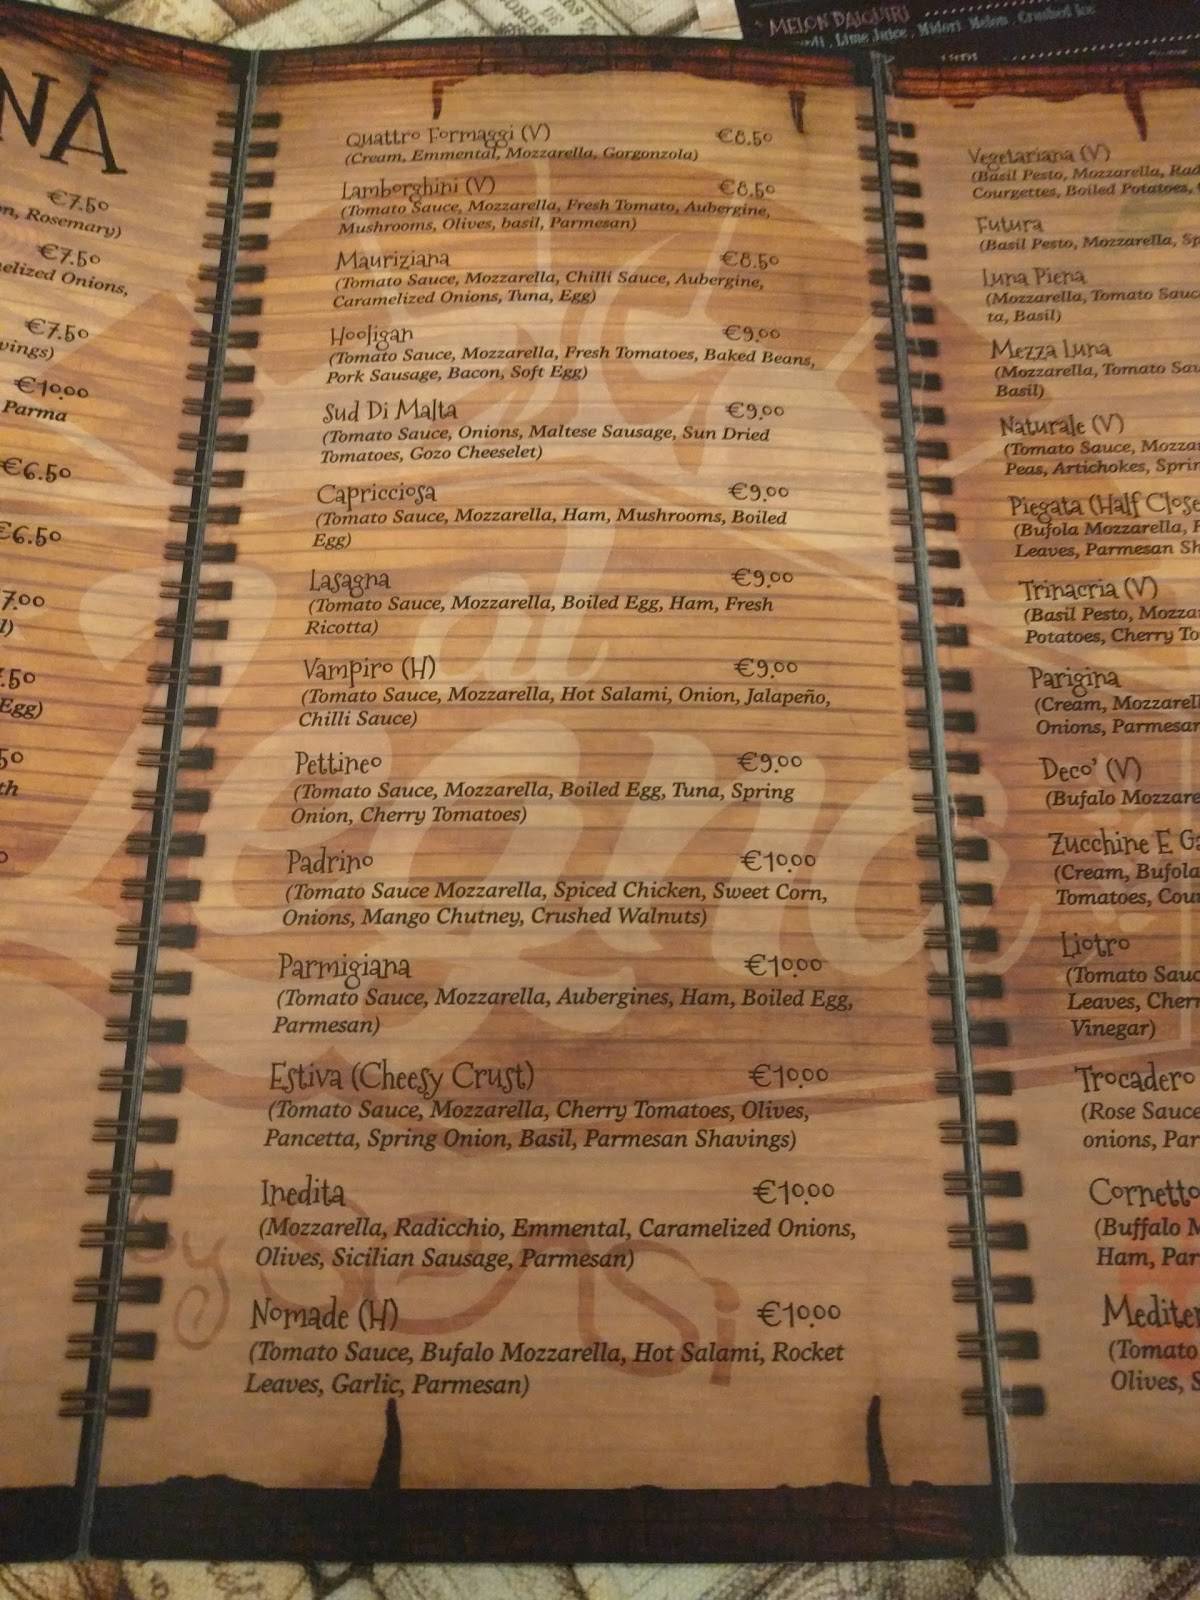 MELON DAIQUIRI
Lime Juice, Midori Melon, Crushed Ice
NÁ
€7.50
Rosemary)
€7.50
Onions,
€7.50
€10.00
Parma
€6.50
€6.50
7.00
Egg)
Quattro Formaggi (V) €8.50
(Cream, Emmental, Mozzarella, Gorgonzola)
Lamborghini (V) €8.50
(Tomato Sauce, Mozzarella, Fresh Tomato, Aubergine,
Mushrooms, Olives, basil, Parmesan)
Mauriziana €8.50
(Tomato Sauce, Mozzarella, Chilli Sauce, Aubergine,
Caramelized Onions, Tuna, Egg)
Hooligan €9.00
(Tomato Sauce, Mozzarella, Fresh Tomatoes, Baked Beans,
Pork Sausage, Bacon, Soft Egg)
Sud Di Malta €9.00
(Tomato Sauce, Onions, Maltese Sausage, Sun Dried
Tomatoes, Gozo Cheeselet)
Capricciosa €9.00
(Tomato Sauce, Mozzarella, Ham, Mushrooms, Boiled
Egg)
Lasagna €9.00
(Tomato Sauce, Mozzarella, Boiled Egg, Ham, Fresh
Ricotta)
Vampiro (H) €9.00
(Tomato Sauce, Mozzarella, Hot Salami, Onion, Jalapeño,
Chilli Sauce)
Pettineo €9.00
(Tomato Sauce, Mozzarella, Boiled Egg, Tuna, Spring
Onion, Cherry Tomatoes)
Padrino €10.00
(Tomato Sauce Mozzarella, Spiced Chicken, Sweet Corn,
Onions, Mango Chutney, Crushed Walnuts)
Parmigiana €10.00
(Tomato Sauce, Mozzarella, Aubergines, Ham, Boiled Egg,
Parmesan)
Estiva (Cheesy Crust) €10.00
(Tomato Sauce, Mozzarella, Cherry Tomatoes, Olives,
Pancetta, Spring Onion, Basil, Parmesan Shavings)
Inedita €10.00
(Mozzarella, Radicchio, Emmental, Caramelized Onions,
Olives, Sicilian Sausage, Parmesan)
Nomade (H) €10.00
(Tomato Sauce, Bufalo Mozzarella, Hot Salami, Rocket
Leaves, Garlic, Parmesan)
al
Legna
Vegetariana (V)
(Basil Pesto, Mozzarella, Rad
Courgettes, Boiled Potatoes,
Futura
(Basil Pesto, Mozzarella, Sp
Luna Piena
(Mozzarella, Tomato Sauc
ta, Basil)
Mezza Luna
(Mozzarella, Tomato Sau
Basil)
Naturale (V)
(Tomato Sauce, Mozza
Peas, Artichokes, Sprin
Piegata (Half Close
(Bufola Mozzarella,
Leaves, Parmesan Sh
Trinacria (V)
(Basil Pesto, Mozza
Potatoes, Cherry To
Parigina
(Cream, Mozzarell
Onions, Parmesan
Deco' (V)
(Bufalo Mozzare
Zucchine E Ga
(Cream, Bufola
Tomatoes, Cour
Liotro
(Tomato Sauc
Leaves, Cherr
Vinegar)
Trocadero
(Rose Sauce
onions, Par
Cornetto
(Buffalo M
Ham, Par
Mediter
(Tomato
Olives, S